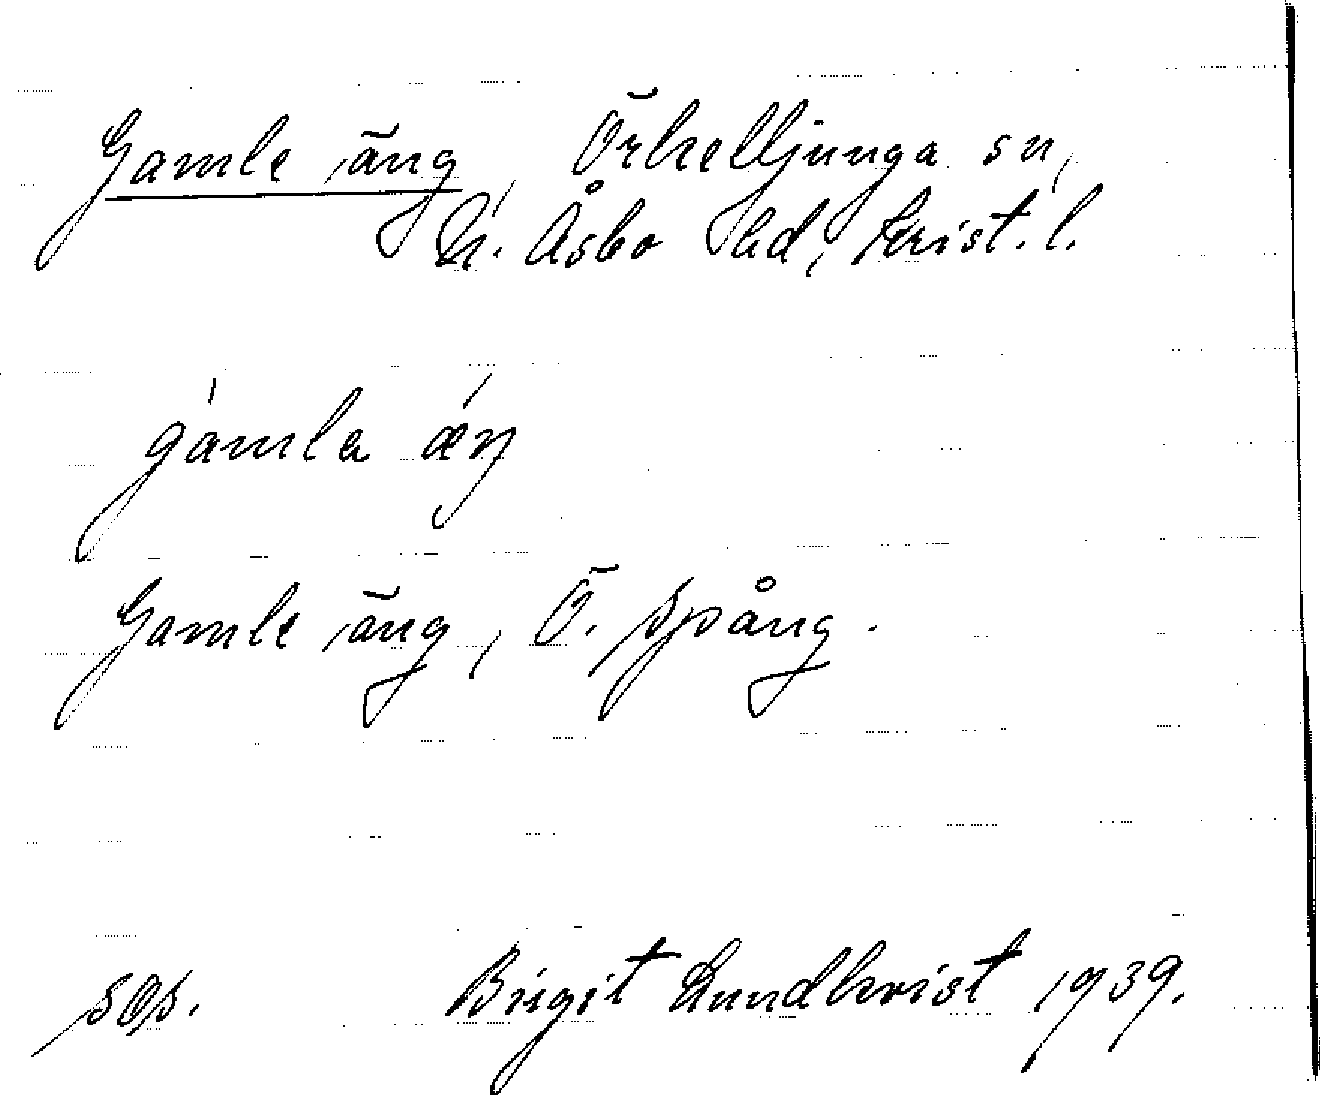 Gamle äng, Örkelljunga sn,
N. Åsbo hd, Krist. l.
gámla ǽŋ
Gamle äng, Ö. Spång.
Birgit Lundkvist 1939.